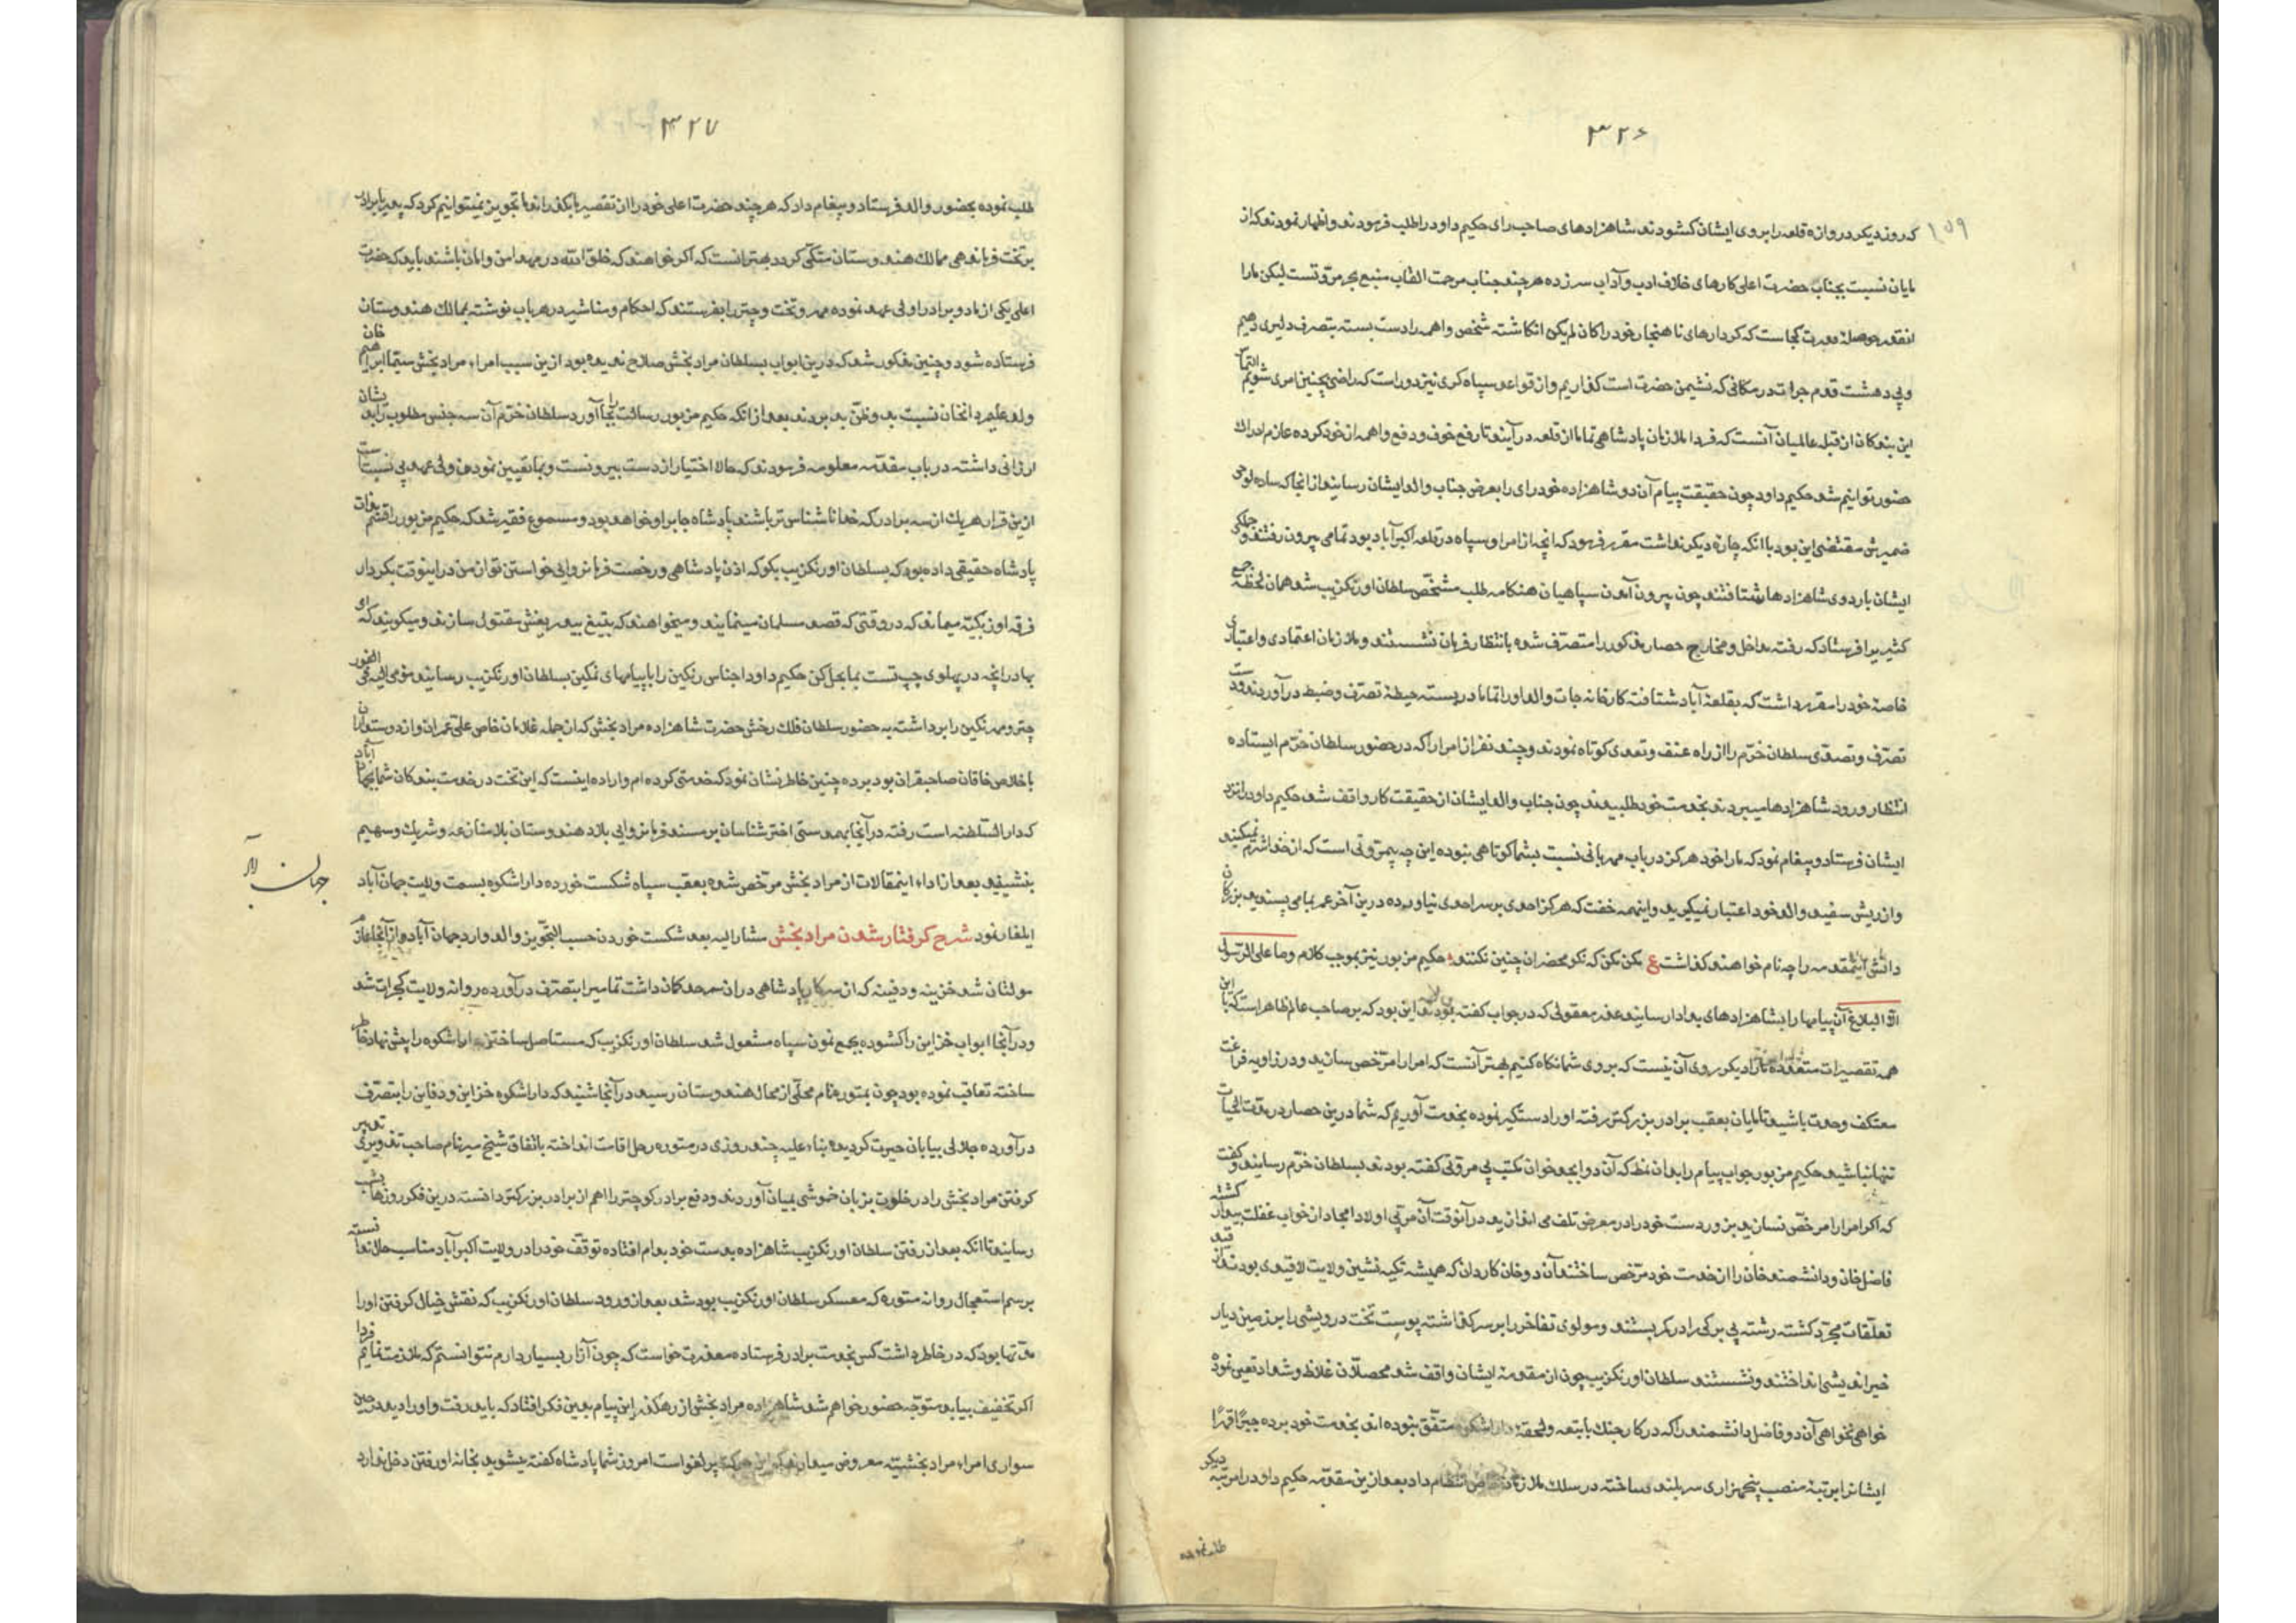 ۳۲۶
۱۵۹
که روز دیکر دروازه قلعه را بروی ایشان کشودند شاهزادهای صاحب رای حکیم داود را طلب فرمودند و اظهار نمودند که از
مایان نسبت بجناب حضرت اعلی کارهای خلاف ادب و آداب سر زده هر چند جناب مرحمت القاب منبع بحر مروتست لیکن ما را
انقدر حوصله و قدرت کجاست که کردارهای ناهنجار خود را کان لم یکن انکاشته شخص واهمه را دست بسته بتصرف دلیری دهیم
و بی دهشت قدم جرات در مکانی که نشیمن حضرت است کذاریم و از قواعد سپاه کری نیز دور است که راضی بچنین امری شویم التماس
این بندکان از قبله عالمیان آنست که فردا ملازمان پادشاهی تماما از قلعه در آیند تا رفع خوف و دفع واهمه از خود کرده عازم ادراک
حضور توانیم شد حکیم داود چون حقیقت پیام آن دو شاهزاده خود رای را بعرض جناب والد ایشان رسانید از انجا که ساده لوحی
ضمیرش مقتضی این بود با انکه چاره دیکر نداشت مقرر فرمود که انچه از امرا و سپاه در قلعه اکبرآباد بود تمامی بیرون رفتند و جملکی
ایشان باردوی شاهزادها شتافتند چون بیرون آمدن سپاهیان هنکامه طلب مشخص سلطان اورنکزیب شد همان لحظه جمع
کثیر یرا فرستاد که رفته مداخل و مخارج حصار مذکور را متصرف شده بانتظار فرمان نشستند و ملازمان اعتمادی و اعتباری
خاصه خود را مقرر داشت که بقلعه آباد شتافته کارخانه جات والد او را تماما در بسته حیطه تصرف و ضبط در آوردند و دست
تصرف و تصدی سلطان خرم را از راه عنف و تعدی کوتاه نمودند و چند نفر از امرا را که در حضور سلطان خرم ایستاده
انتظار ورود شاهزادها میبردند بخدمت خود طلبیدند چون جناب والد ایشان از حقیقت کار واقف شد حکیم داود را نزد
ایشان فرستاد و پیغام نمود که ما را خود هرکز در باب مهربانی نسبت بشما کوتاهی نبوده این چه بیمروتی است که از خدا شرم نمیکنید
و از ریش سفید والد خود اعتبار نمیکیرید و اینهمه خفت که هرکز احدی بر سر احدی نیاورده درین آخر عمر بما می پسندید بزرکان
دانش اینمقدمه را چه نام خواهند کذاشت ع مکن مکن که نکو محضران چنین نکنند حکیم مزبور نیز بموجب کلام وما علی الرسول
الا البلاغ آن پیامها را بشاهزادهای بعد ادا رسانید عذر معقولی که در جواب کفته بودند این بود که بر صاحب عالم ظاهر است که با این
همه تقصیرات متعدده ما را دیکر روی آن نیست که بروی شما نکاه کنیم بهتر آنست که امرا را مرخص سازید و در زاویه فراغت
معتکف وحدت باشید تا مایان بعقب برادر بزرکتر رفته او را دستکیر نموده بخدمت آوریم که شما درین حصار در بقیة الحیات
تنها نباشید حکیم مزبور جواب پیام را بدان نمط که آن دو ابجد خوان مکتب بی مروتی کفته بودند بسلطان خرم رسانید و کفت
که اکر امرا را مرخص نسازید بزور دست خود را در معرض تلف می اندازید در آنوقت آن مربی اولاد امجاد از خواب غفلت بیدار کشته
فاضل خان و دانشمند خان را از خدمت خود مرخص ساختند آن دو خان کاردان که همیشه تکیه نشین ولایت لاقیدی بودند از قید
تعلقات مجرد کشته رشته بی برکی را در کمر بستند و مولوی تفاخر را بر سر کذاشته پوست تخت درویشی را بر زمین دیار
خیر اندیشی انداختند و نشستند سلطان اورنکزیب چون از مقدمه ایشان واقف شد محصلان غلاظ و شداد تعین نموده
خواهی نخواهی آن دو فاضل دانشمند را که در کار جنک با بتعه و لحقه داراشکوه متفق نبوده اند بخدمت خود برده جبراً قهراً
ایشانرا برتبه منصب پنجهزاری سربلند ساخته در سلک ملازمان خاص انتظام داد بعد ازین مقدمه حکیم داود را مرتبه دیکر
طلب نموده
۳۲۷
طلب نموده بحضور والد فرستاد و پیغام داد که هر چند حضرت اعلی خود را از تقصیر ما بکذرانند ما تجویز نمیتوانیم کرد که پدر با برادر
بر تخت فرماندهی ممالک هندوستان متکی کردد بهتر انست که اکر خواهند که خلق الله در مهد امن و امان باشند باید که حضرت
اعلی یکی از ما دو برادر را ولی عهد نموده مهر و تخت و چتر را بفرستند که احکام و مناشیر در هر باب نوشته بممالک هندوستان
فرستاده شود و چنین مذکور شد که درین ابواب بسلطان مراد بخش صلاح ندیده بود ازین سبب امراء مراد بخش سیما ابراهیم خان
ولد علیمردانخان نسبت بد و ظن بد بردند بعد از انکه حکیم مزبور رسالت را بجا آورد سلطان خرم آن سه جنس مطلوب را بدیشان
ارزانی داشته در باب مقدمه معلومه فرمودند که حالا اختیار از دست بیرونست و بما تعیین نمودن ولی عهد بی نسبت است
ازین قرار هر یک از سه برادر که خدا ناشناس تر باشند پادشاه جابر او خواهد بود و مسموع فقیر شد که حکیم مزبور را قسم بذات
پادشاه حقیقی داده بود که بسلطان اورنکزیب بکو که اذن پادشاهی و رخصت فرمانروایی خواستن تو از من در اینوقت بکردار
فرقه اوزبکیه میماند که در وقتی که قصد مسلمان مینمایند و میخواهند که بتیغ بیدریغش مقتول سازند و میکویند که ای
بهادر انچه در پهلوی چپ تست بما بحل کن حکیم داود اجناس رنکین را با پیامهای نمکین بسلطان اورنکزیب رسانید مومی الیه فی الفور
چتر و مهر نکین را برداشته به حضور سلطان فلک رخش حضرت شاهزاده مراد بخش که از جمله غلامان خاص علی عمران و از دوستداران
با خلاص خاقان صاحبقران بود برده چنین خاطر نشان نمود که خدمتی کرده ام و اراده اینست که این تخت در خدمت بندکان شما بجهان آباد
که دار السلطنه است رفته در آنجا بمدد ستی اختر شناسان بر مسند فرمانروایی بلاد هندوستان بلا منازعه و شریک و سهیم
بنشینید بعد از اداء اینمقالات از مراد بخش مرخص شده بعقب سپاه شکست خورده داراشکوه بسمت ولایت جهان آباد
ایلغار نمود شرح کرفتار شدن مراد بخش مشار الیه بعد شکست خوردن حسب التجویز والد وارد جهان آباد و از آنجا عازم
مولتان شد خزینه و دفینه که از سرکار پادشاهی در ان سرحد مکان داشت تمامیرا بتصرف در آورده روانه ولایت کجرات شد
و در آنجا ابواب خزاین را کشوده بجمع نمودن سپاه مشغول شد سلطان اورنکزیب که مستاصل ساختن داراشکوه را پیش نهاد خاطر
ساخته تعاقب نموده بود چون بمتوره نام محلی از محال هندوستان رسید در آنجا شنید که داراشکوه خزاین و دفاین را بتصرف
در آورده جلالی بیابان حیرت کردیده بناء علیه چند روزی در متوره رحل اقامت انداخته باتفاق شیخ میر نام صاحب تدویری تدبیر
کرفتن مراد بخش را در خلوت بزبان خموشی بمیان آوردند و دفع برادر کوچتر را اهم از برادر بزرکتر دانسته درین فکر روزها بشب
رسانید تا انکه بعد از رفتن سلطان اورنکزیب شاهزاده بدست خود بدام افتاده توقف خود را در ولایت اکبرآباد مناسب حال ندانسته
برسم استعجال روانه متوره که معسکر سلطان اورنکزیب بود شد بعد از ورود سلطان اورنکزیب که نقش خیال کرفتن او را
مدتها بود که در خاطر داشت کس بخدمت برادر فرستاده معذرت خواست که چون آزار بسیار دارم نتوانستم که ملازمت نمایم فردا
اکر تخفیف بیابد متوجه حضور خواهم شد شاهزاده مراد بخش از رهکذر این پیام بدین فکر افتاد که باید رفت و او را دید در حین
سواری امراء مراد بخشیته معروض میدارند که این حرکت پر لغو است امروز شما پادشاه کفته میشوید بخانه او رفتن دخل ندارد
جهان آرا